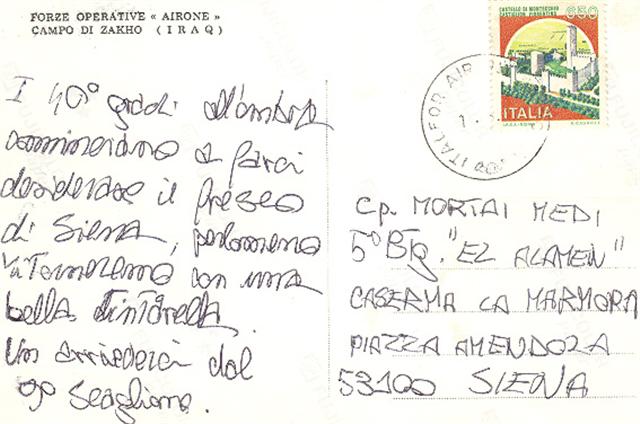 FORZE OPERATIVE « AIRONE »
CAMPO DI ZAKHO (IRAQ)
I 40° gradi all'ombra
cominciano a farci
desiderare il fresco
di Siena, perlomeno
ritorneremo con una
bella tintarella.
Un arrivederci dal
9° Scaglione.
CASTELLO DI MONTECCHIO
CASTIGLION FIORENTINO
650
ITALIA
ITALFOR AIR
Cp. MORTAI MEDI
5° Btg. "EL ALAMEN"
CASERMA LA MARMORA
PIAZZA AMENDOLA
53100 SIENA